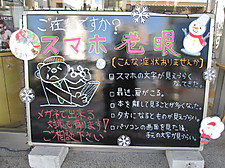 ご存じですか?
スマホ老眼
(こんな症状ありませんか)
スマホの文字が見えづらくなってきた。
最近、肩がこる。
本を離して見ることが多くなった。
夕方になるとものが見えづらい。
パソコンの画面を見た後、
手元の文字が見づらい
メガネで出来る
対策が有ります!
ご相談下さい